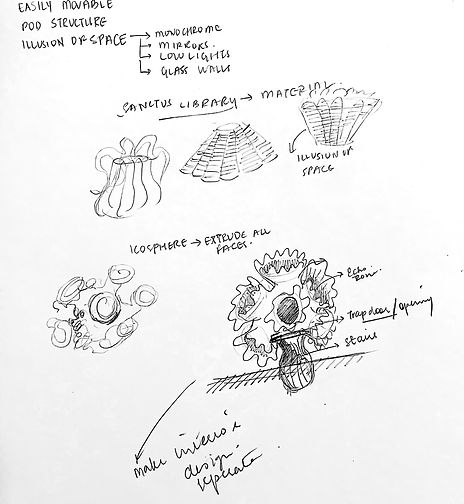 EASILY MOVABLE
POD STRUCTURE
ILLUSION OF SPACE → MONOCHROME
→ MIRRORS.
→ LOW LIGHTS
→ GLASS WALLS
SANCTUS LIBRARY → MATERIAL.
ILLUSION OF
SPACE
ICOSPHERE → EXTRUDE ALL
FACES.
Trap door/opening
Stairs
make interior
design
separate